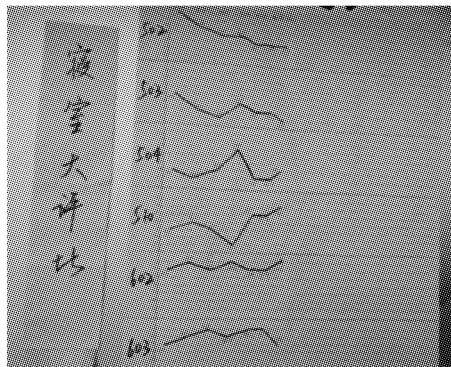 寝室大评比
502
503
504
510
602
603